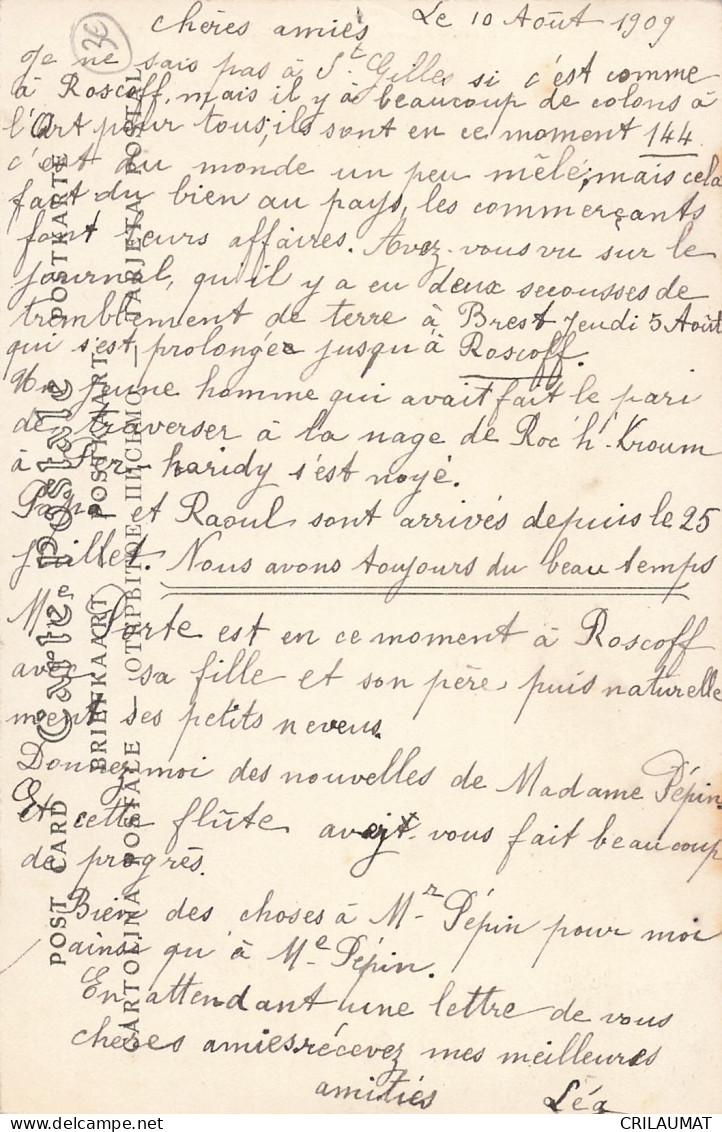 Le 10 Août 1909
chères amies
Je ne sais pas à St Gilles si c'est comme
à Roscoff, mais il y à beaucoup de colons à
l'art pour tous, ils sont en ce moment 144
c'est du monde un peu mêlé, mais cela
fait du bien au pays, les commerçants
font leurs affaires. Avez-vous vu sur le
journal, qu'il y a eu deux secousses de
tremblement de terre à Brest Jeudi 5 Août
qui s'est prolongée jusqu'à Roscoff.
Un jeune homme qui avait fait le pari
de traverser à la nage de Roc'h'-Kroum
à Per-haridy s'est noyé.
et Raoul sont arrivés depuis le 25
juillet. Nous avons toujours du beau temps
Porte est en ce moment à Roscoff
avec sa fille et son père, puis naturelle
ment ses petits neveus.
Donnez moi des nouvelles de Madame Pépin.
Et cette flûte avez-vous fait beaucoup
de progrès.
Bien des choses à Mr Pépin pour moi
ainsi qu'à Me Pépin.
En attendant une lettre de vous
chères amies recevez mes meilleures
amitiés Léa
POST CARD Carte Postale POSTKARTE
BRIEFKAART POSTKAART
CARTOLINA POSTALE — ОТКРЫТОЕ ПИСЬМО — TARJETA POSTAL
CRILAUMAT